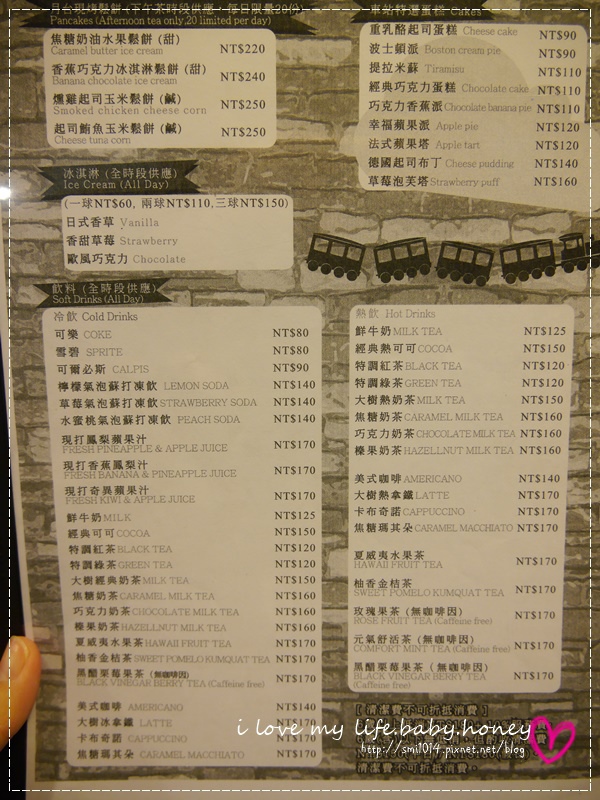 月台現烤鬆餅(下午茶時段供應，每日限量20份)
Pancakes (Afternoon tea only,20 limited per day)
焦糖奶油水果鬆餅 (甜)
Caramel butter ice cream
NT$220
香蕉巧克力冰淇淋鬆餅 (甜)
Banana chocolate ice cream
NT$240
燻雞起司玉米鬆餅 (鹹)
Smoked chicken cheese corn
NT$250
起司鮪魚玉米鬆餅 (鹹)
Cheese tuna corn
NT$250
冰淇淋 (全時段供應)
Ice Cream (All Day)
(一球NT$60, 兩球NT$110,三球NT$150)
日式香草 Vanilla
香甜草莓 Strawberry
歐風巧克力 Chocolate
車站特選蛋糕 Cakes
重乳酪起司蛋糕 Cheese cake NT$90
波士頓派 Boston cream pie NT$90
提拉米蘇 Tiramisu NT$110
經典巧克力蛋糕 Chocolate cake NT$110
巧克力香蕉派 Chocolate banana pie NT$110
幸福蘋果派 Apple pie NT$120
法式蘋果塔 Apple tart NT$120
德國起司布丁 Cheese pudding NT$140
草莓泡芙塔 Strawberry puff NT$160
飲料 (全時段供應)
Soft Drinks (All Day)
冷飲 Cold Drinks
可樂 COKE NT$80
雪碧 SPRITE NT$80
可爾必斯 CALPIS NT$90
檸檬氣泡蘇打凍飲 LEMON SODA NT$140
草莓氣泡蘇打凍飲 STRAWBERRY SODA NT$140
水蜜桃氣泡蘇打凍飲 PEACH SODA NT$140
現打鳳梨蘋果汁
FRESH PINEAPPLE & APPLE JUICE NT$170
現打香蕉鳳梨汁
FRESH BANANA & PINEAPPLE JUICE NT$170
現打奇異蘋果汁
FRESH KIWI & APPLE JUICE NT$170
鮮牛奶 MILK NT$125
經典可可 COCOA NT$150
特調紅茶 BLACK TEA NT$120
特調綠茶 GREEN TEA NT$120
大樹經典奶茶 MILK TEA NT$150
焦糖奶茶 CARAMEL MILK TEA NT$160
巧克力奶茶 CHOCOLATE MILK TEA NT$160
榛果奶茶 HAZELLNUT MILK TEA NT$160
夏威夷水果茶 HAWAII FRUIT TEA NT$170
柚香金桔茶 SWEET POMELO KUMQUAT TEA NT$170
黑醋栗莓果茶 (無咖啡因)
BLACK VINEGAR BERRY TEA (Caffeine free) NT$170
美式咖啡 AMERICANO NT$140
大樹冰拿鐵 LATTE NT$170
卡布奇諾 CAPPUCCINO NT$170
焦糖瑪其朵 CARAMEL MACCHIATO NT$170
熱飲 Hot Drinks
鮮牛奶 MILK TEA NT$125
經典熱可可 COCOA NT$150
特調紅茶 BLACK TEA NT$120
特調綠茶 GREEN TEA NT$120
大樹熱奶茶 MILK TEA NT$150
焦糖奶茶 CARAMEL MILK TEA NT$160
巧克力奶茶 CHOCOLATE MILK TEA NT$160
榛果奶茶 HAZELLNUT MILK TEA NT$160
美式咖啡 AMERICANO NT$140
大樹熱拿鐵 LATTE NT$170
卡布奇諾 CAPPUCCINO NT$170
焦糖瑪其朵 CARAMEL MACCHIATO NT$170
夏威夷水果茶
HAWAII FRUIT TEA NT$170
柚香金桔茶
SWEET POMELO KUMQUAT TEA NT$170
玫瑰果茶 (無咖啡因)
ROSE FRUIT TEA (Caffeine free) NT$170
元氣舒活茶 (無咖啡因)
COMFORT MINT TEA (Caffeine free) NT$170
黑醋栗莓果茶 (無咖啡因)
BLACK VINEGAR BERRY TEA
(Caffeine free) NT$170
[清潔費不可折抵消費]
i love my life.baby.honey
http://smi1014.pixnet.net/blog
清潔費不可折抵消費。